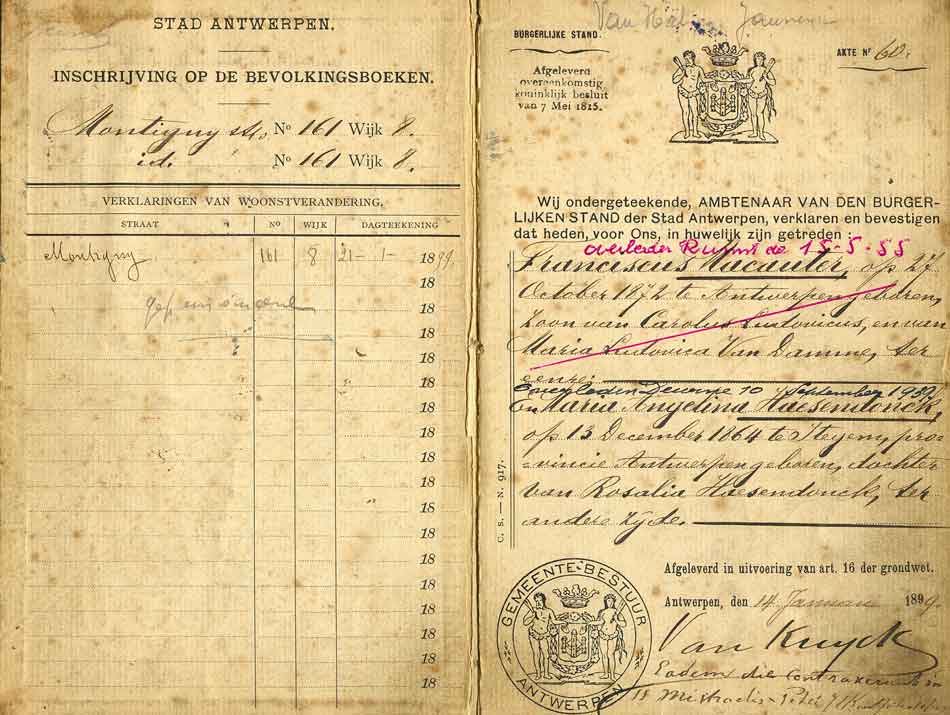 STAD ANTWERPEN.
INSCHRIJVING OP DE BEVOLKINGSBOEKEN.
Montigny str, No 161 Wijk 8.
id. No 161 Wijk 8.
VERKLARINGEN VAN WOONSTVERANDERING,
STRAAT No WIJK DAGTEEKENING
Montigny 161 8 21-1- 1899
18
18
18
18
18
18
18
18
18
18
18
18
18
18
18
18
18
Van Jannen
BURGERLIJKE STAND.
AKTE No 60.
Afgeleverd
overeenkomstig
koninklijk besluit
van 7 Mei 1815.
Wij ondergeteekende, AMBTENAAR VAN DEN BURGER-
LIJKEN STAND der Stad Antwerpen, verklaren en bevestigen
dat heden, voor Ons, in huwelijk zijn getreden :
overleden de 15-5-55
Franciscus Macauter, op 27
October 1872 te Antwerpen geboren,
Zoon van Carolus Ludovicus, en van
Maria Ludovica Van Damme, ter
eenre;
Overleden Deurne 10 September
En Maria Angelina Haesendonck,
op 13 December 1864 te Itegem, pro-
vincie Antwerpen geboren, dochter
van Rosalia Haesendonck, ter
andere zyde.
C. S. — N. 917.
Afgeleverd in uitvoering van art. 16 der grondwet.
Antwerpen, den 14 Januari 1899.
GEMEENTE-BESTUUR
ANTWERPEN
Van Kuyck
Eadem die contraxerunt in